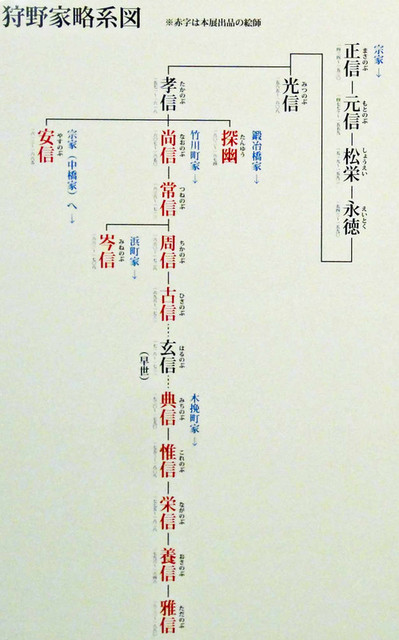 狩野家略系図
※赤字は本展出品の絵師
宗家→
正信
まさのぶ
元信
もとのぶ
松栄
しょうえい
永徳
えいとく
光信
みつのぶ
孝信
たかのぶ
鍛冶橋家→
探幽
たんゆう
竹川町家→
尚信
なおのぶ
宗家(中橋家)へ→
安信
やすのぶ
常信
つねのぶ
周信
ちかのぶ
浜町家→
岑信
みねのぶ
古信
ひさのぶ
玄信
はるのぶ
(早世)
木挽町家→
典信
みちのぶ
惟信
これのぶ
栄信
ながのぶ
養信
おさのぶ
雅信
ただのぶ